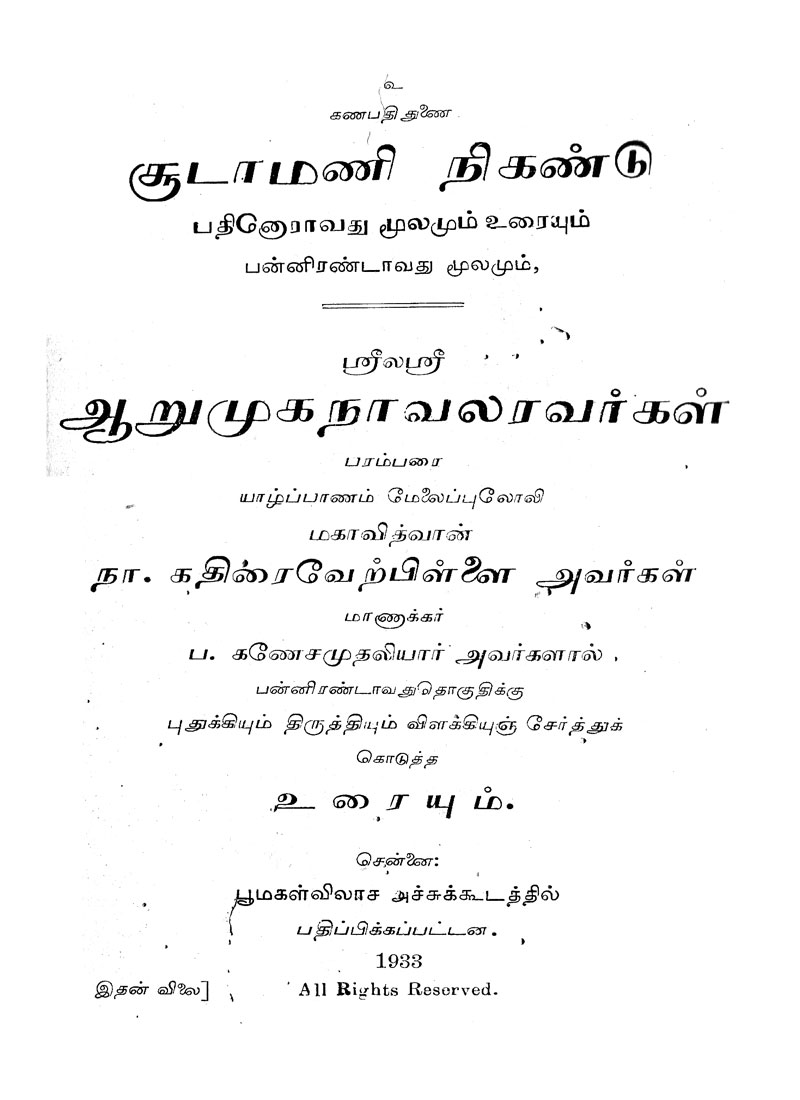 உ
கணபதி துணை
சூடாமணி நிகண்டு
பதினோராவது மூலமும் உரையும்
பன்னிரண்டாவது மூலமும்,
ஸ்ரீலஸ்ரீ
ஆறுமுகநாவலரவர்கள்
பரம்பரை
யாழ்ப்பாணம் மேலைப்புலோலி
மகாவித்வான்
நா. கதிரைவேற்பிள்ளை அவர்கள்
மாணாக்கர்
ப. கணேசமுதலியார் அவர்களால்
பன்னிரண்டாவதுதொகுதிக்கு
புதுக்கியும் திருத்தியும் விளக்கியுஞ் சேர்த்துக்
கொடுத்த
உரையும்.
சென்னை:
பூமகள்விலாச அச்சுக்கூடத்தில்
பதிப்பிக்கப்பட்டன.
1933
இதன் விலை] All Rights Reserved.